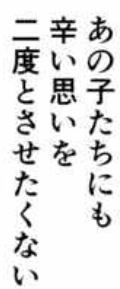 あの子たちにも
辛い思いを
二度とさせたくない